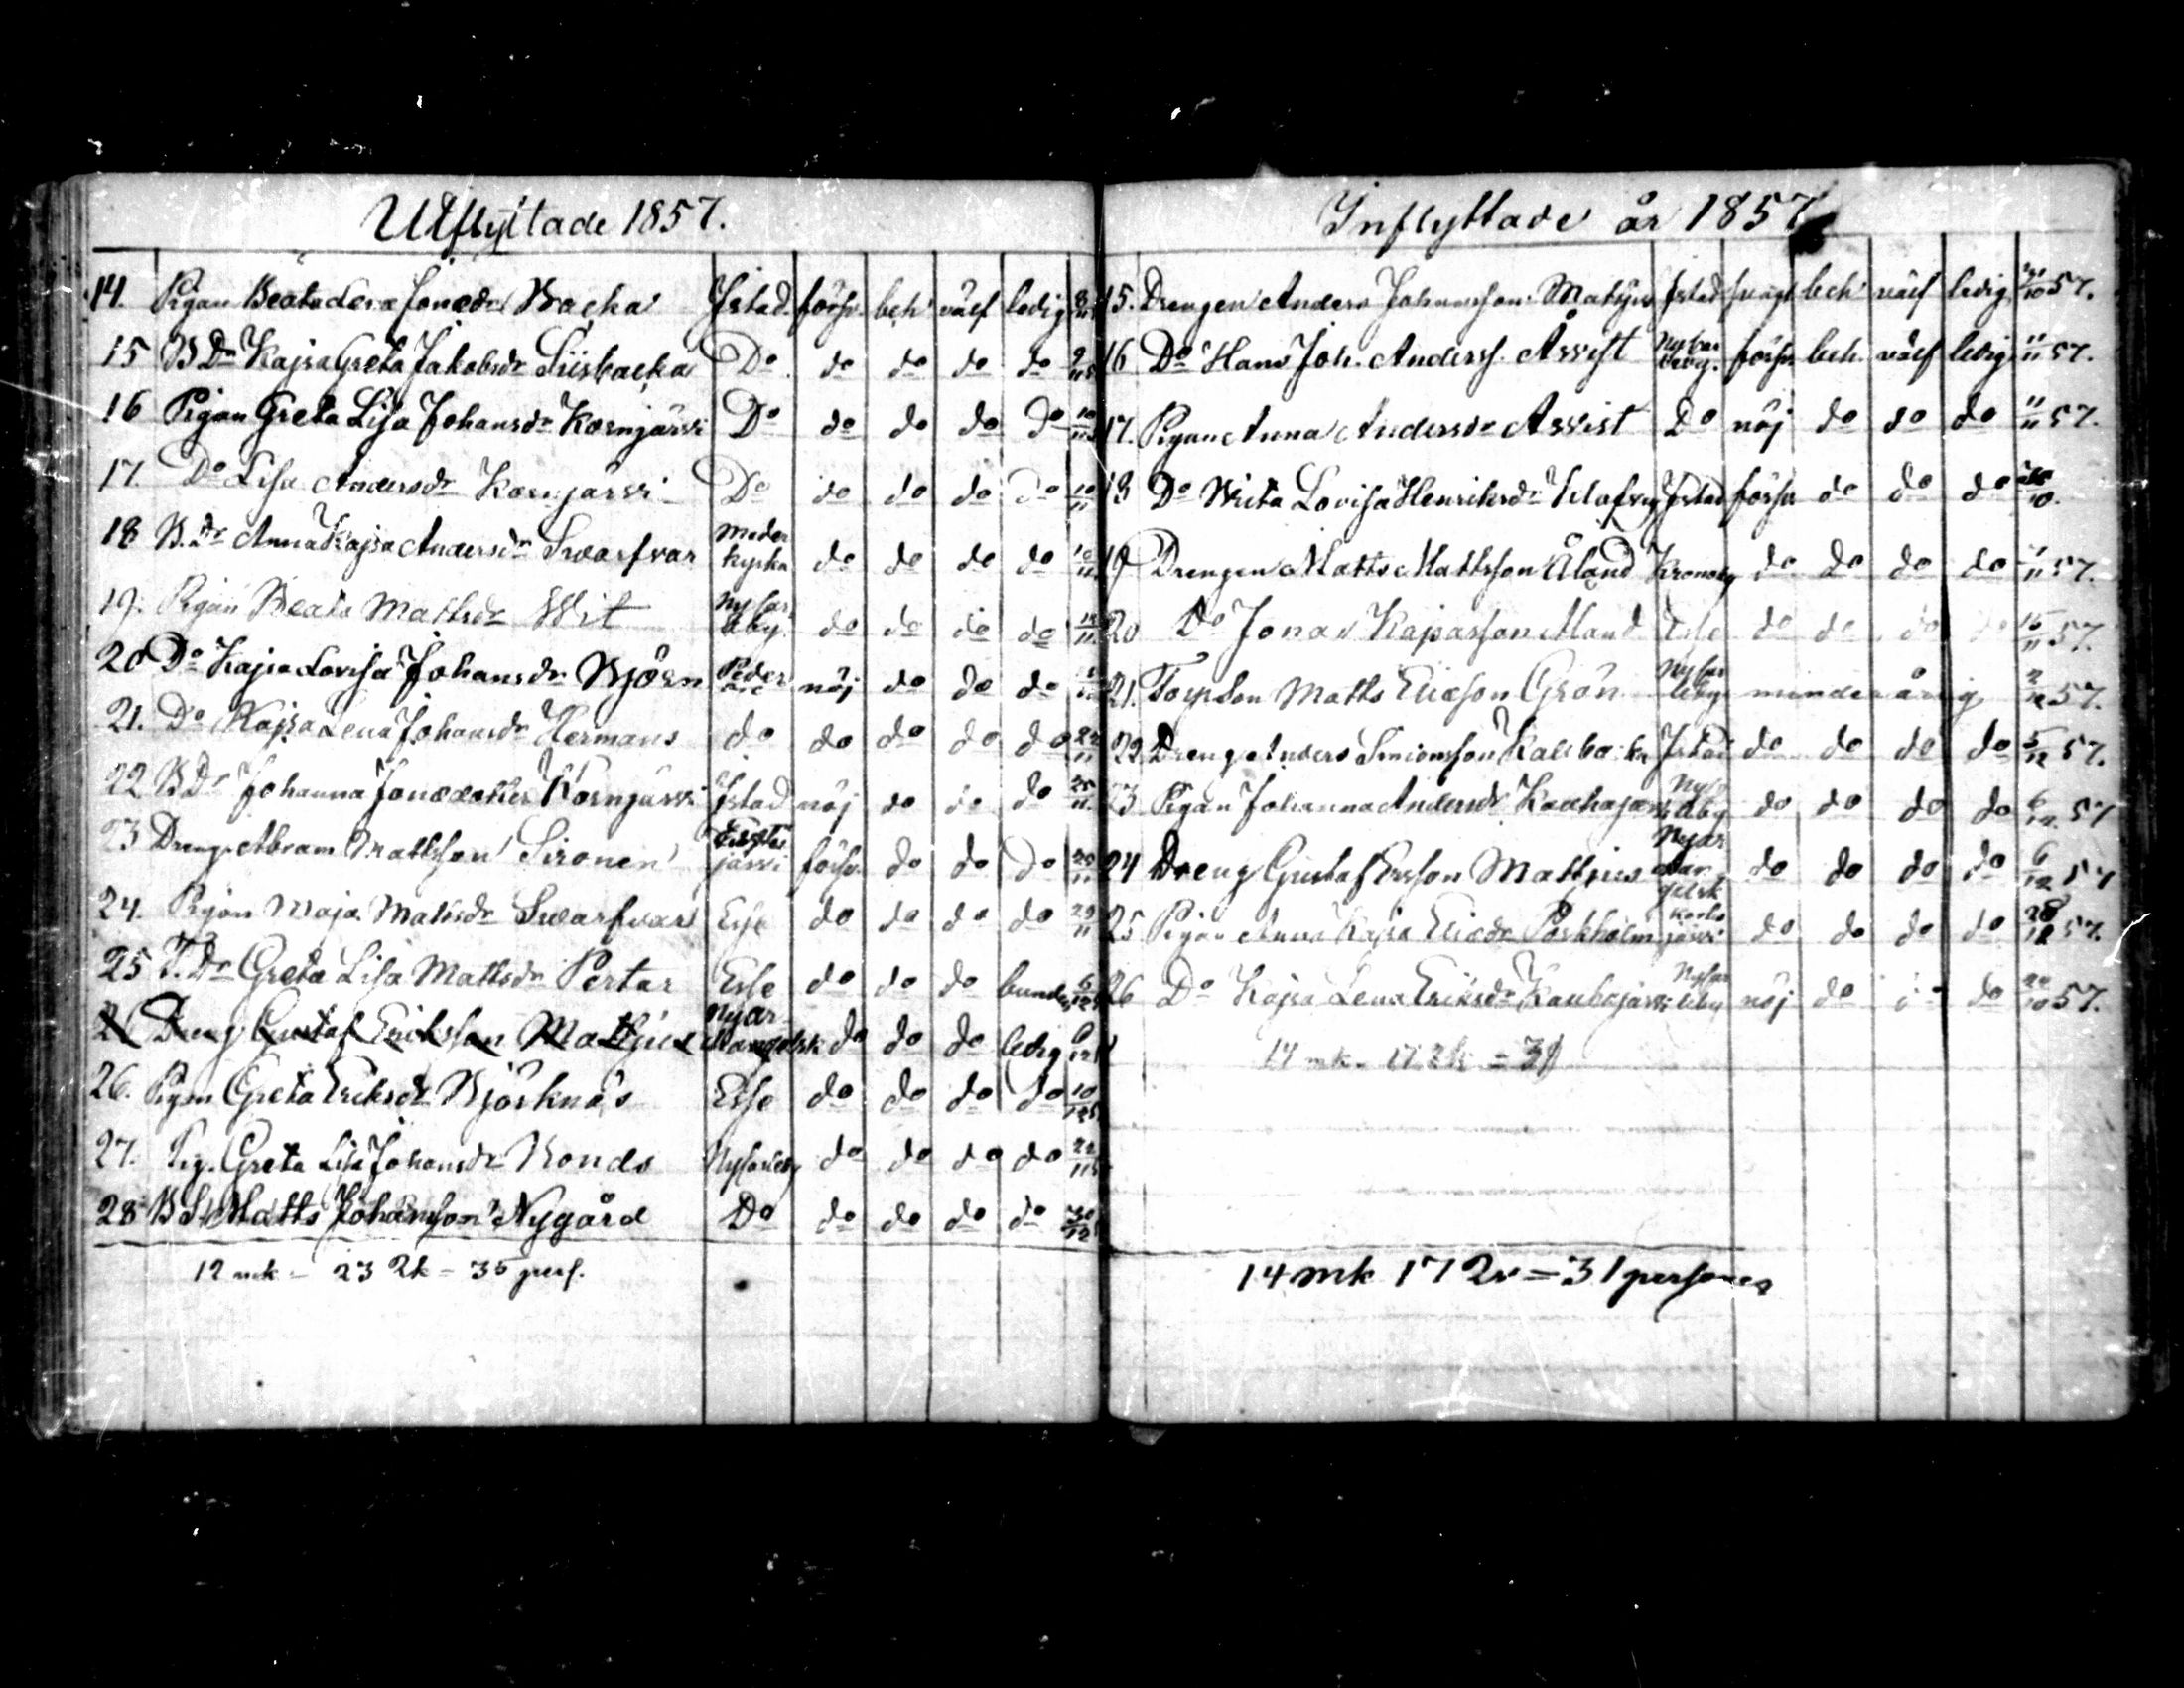 Utflyttade 1857.
14. Pigan Beata Lena Jonædr Backa Jstad. försv. beh. väl ledig
15 B Dr Kajsa Greta Jakobsdr Siisbacka Do do do do do
16 Pigan Greta Lisa Johansdr Kornjärvi Do do do do do
17. Do Lisa Andersdr Kornjärvi Do do do do do
18 B. Dr Anna Kajsa Andersdr Swarfvar do do do do
19. Pigan Beata Mattsdr Wit Nykar leby. do do do do
20 Do Kajsa Lovisa Johansdr Björn Peder nöj do do do
21. Do Kajsa Lena Johansdr Hermans do do do do do
22 B Dr Johanna Jonædotter Kornjärvi Jstad nöj do do do
23 Dreng. Abram Mattsson Sironen järvi försv. do do do
24. Pigan Maja Mattsdr Swarfvar Esse do do do do
25 T. Dr Greta Lisa Mattsdr Pertar Esse do do do bunden
26 Dreng Gustaf Eriksson Mattjus Nyar do do do ledig
26. Pigan Greta Eriksdr Björknäs Esse do do do do
27. Pig. Greta Lisa Johansdr Bonds Nykarleby do do do do
28 B S. Matts Johansson Nygård Do do do do do
12 mk - 23 2k - 35 pers.
Inflyttade år 1857
15. Drengen Anders Johansson Matsjus Jstad beh väl ledig 57.
16 Do Hans Joh. Anderss. Åsvist Nykar leby. försv. beh. väl ledig 11/11 57.
17. Pigan Anna Andersdr Åsvist Do nöj do do do 11/11 57.
18 Do Brita Lovisa Henriksdr Jstad försv do do do
19 Drengen Matts Mattsson Åland Kronoby do do do do 57.
20 Do Jonas Kajsasson Åland Esse do do do do 15/11 57.
21. Torp Son Matts Ericson Grön Nykar leby minder årig 57.
22 Dreng Anders Simonsson Kallbacka Jstad do do do do 5/12 57.
23 Pigan Johanna Andersdr Kauhajärvi do do do do 6/12. 57
24 Dreng Gustaf Ersson Mattjus do do do do 6/12 57
25 Pigan Anna Kajsa Ericsdr Paskholm järvi do do do do 28/12 57.
26 Do Kajsa Lena Eriksdr Kauhajärvi Nykar leby nöj do do do 57.
14 mk. 17 2k = 31
14 mk 17 2k = 31 personer